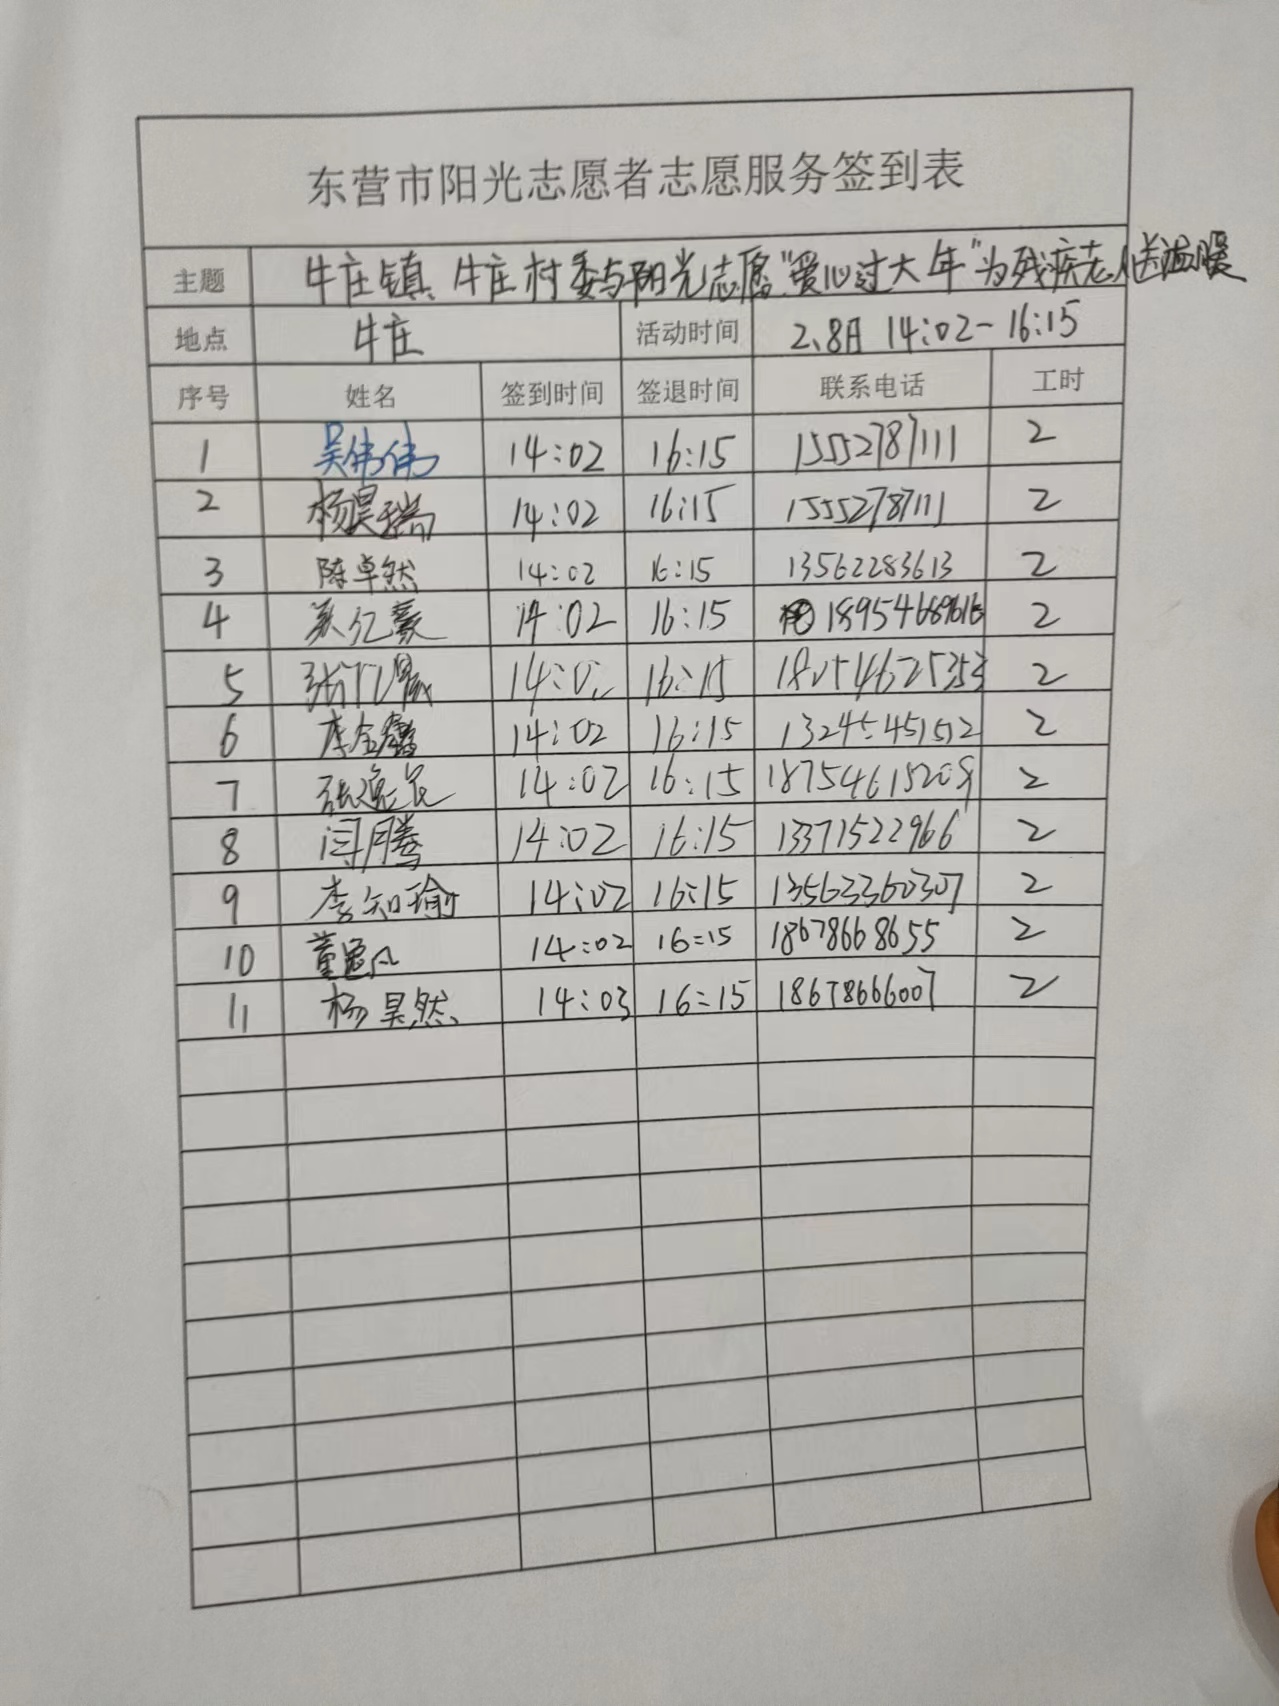 东营市阳光志愿者志愿服务签到表
主题 牛庄镇、牛庄村委与阳光志愿"爱心过大年"为残疾老人送温暖
地点 牛庄 活动时间 2.8月 14:02-16:15
序号 姓名 签到时间 签退时间 联系电话 工时
1 吴伟伟 14:02 16:15 15552787111 2
2 杨昊瑞 14:02 16:15 15552787111 2
3 陈卓然 14:02 16:15 13562283613 2
4 14:02 16:15 2
5 16:15 2
6 李金鑫 14:02 16:15 2
7 张逸民 14:02 16:15 18754615209 2
8 闫腾 14:02 16:15 13371522966 2
9 李知瑜 14:02 16:15 13563360307 2
10 14:02 16:15 18678668655 2
11 杨昊然 14:03 16:15 18678666007 2